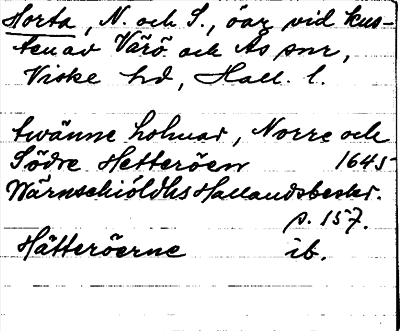 Horta, N. och S., öar vid kus-
ten av Värö och Ås snr,
Viske hd, Hall. l.
twänne holmar, Norre och
Södre Hetteröen 1645
Wärnschiöldhs Hallandsbeskr.
p. 157.
Hätteröerne ib.